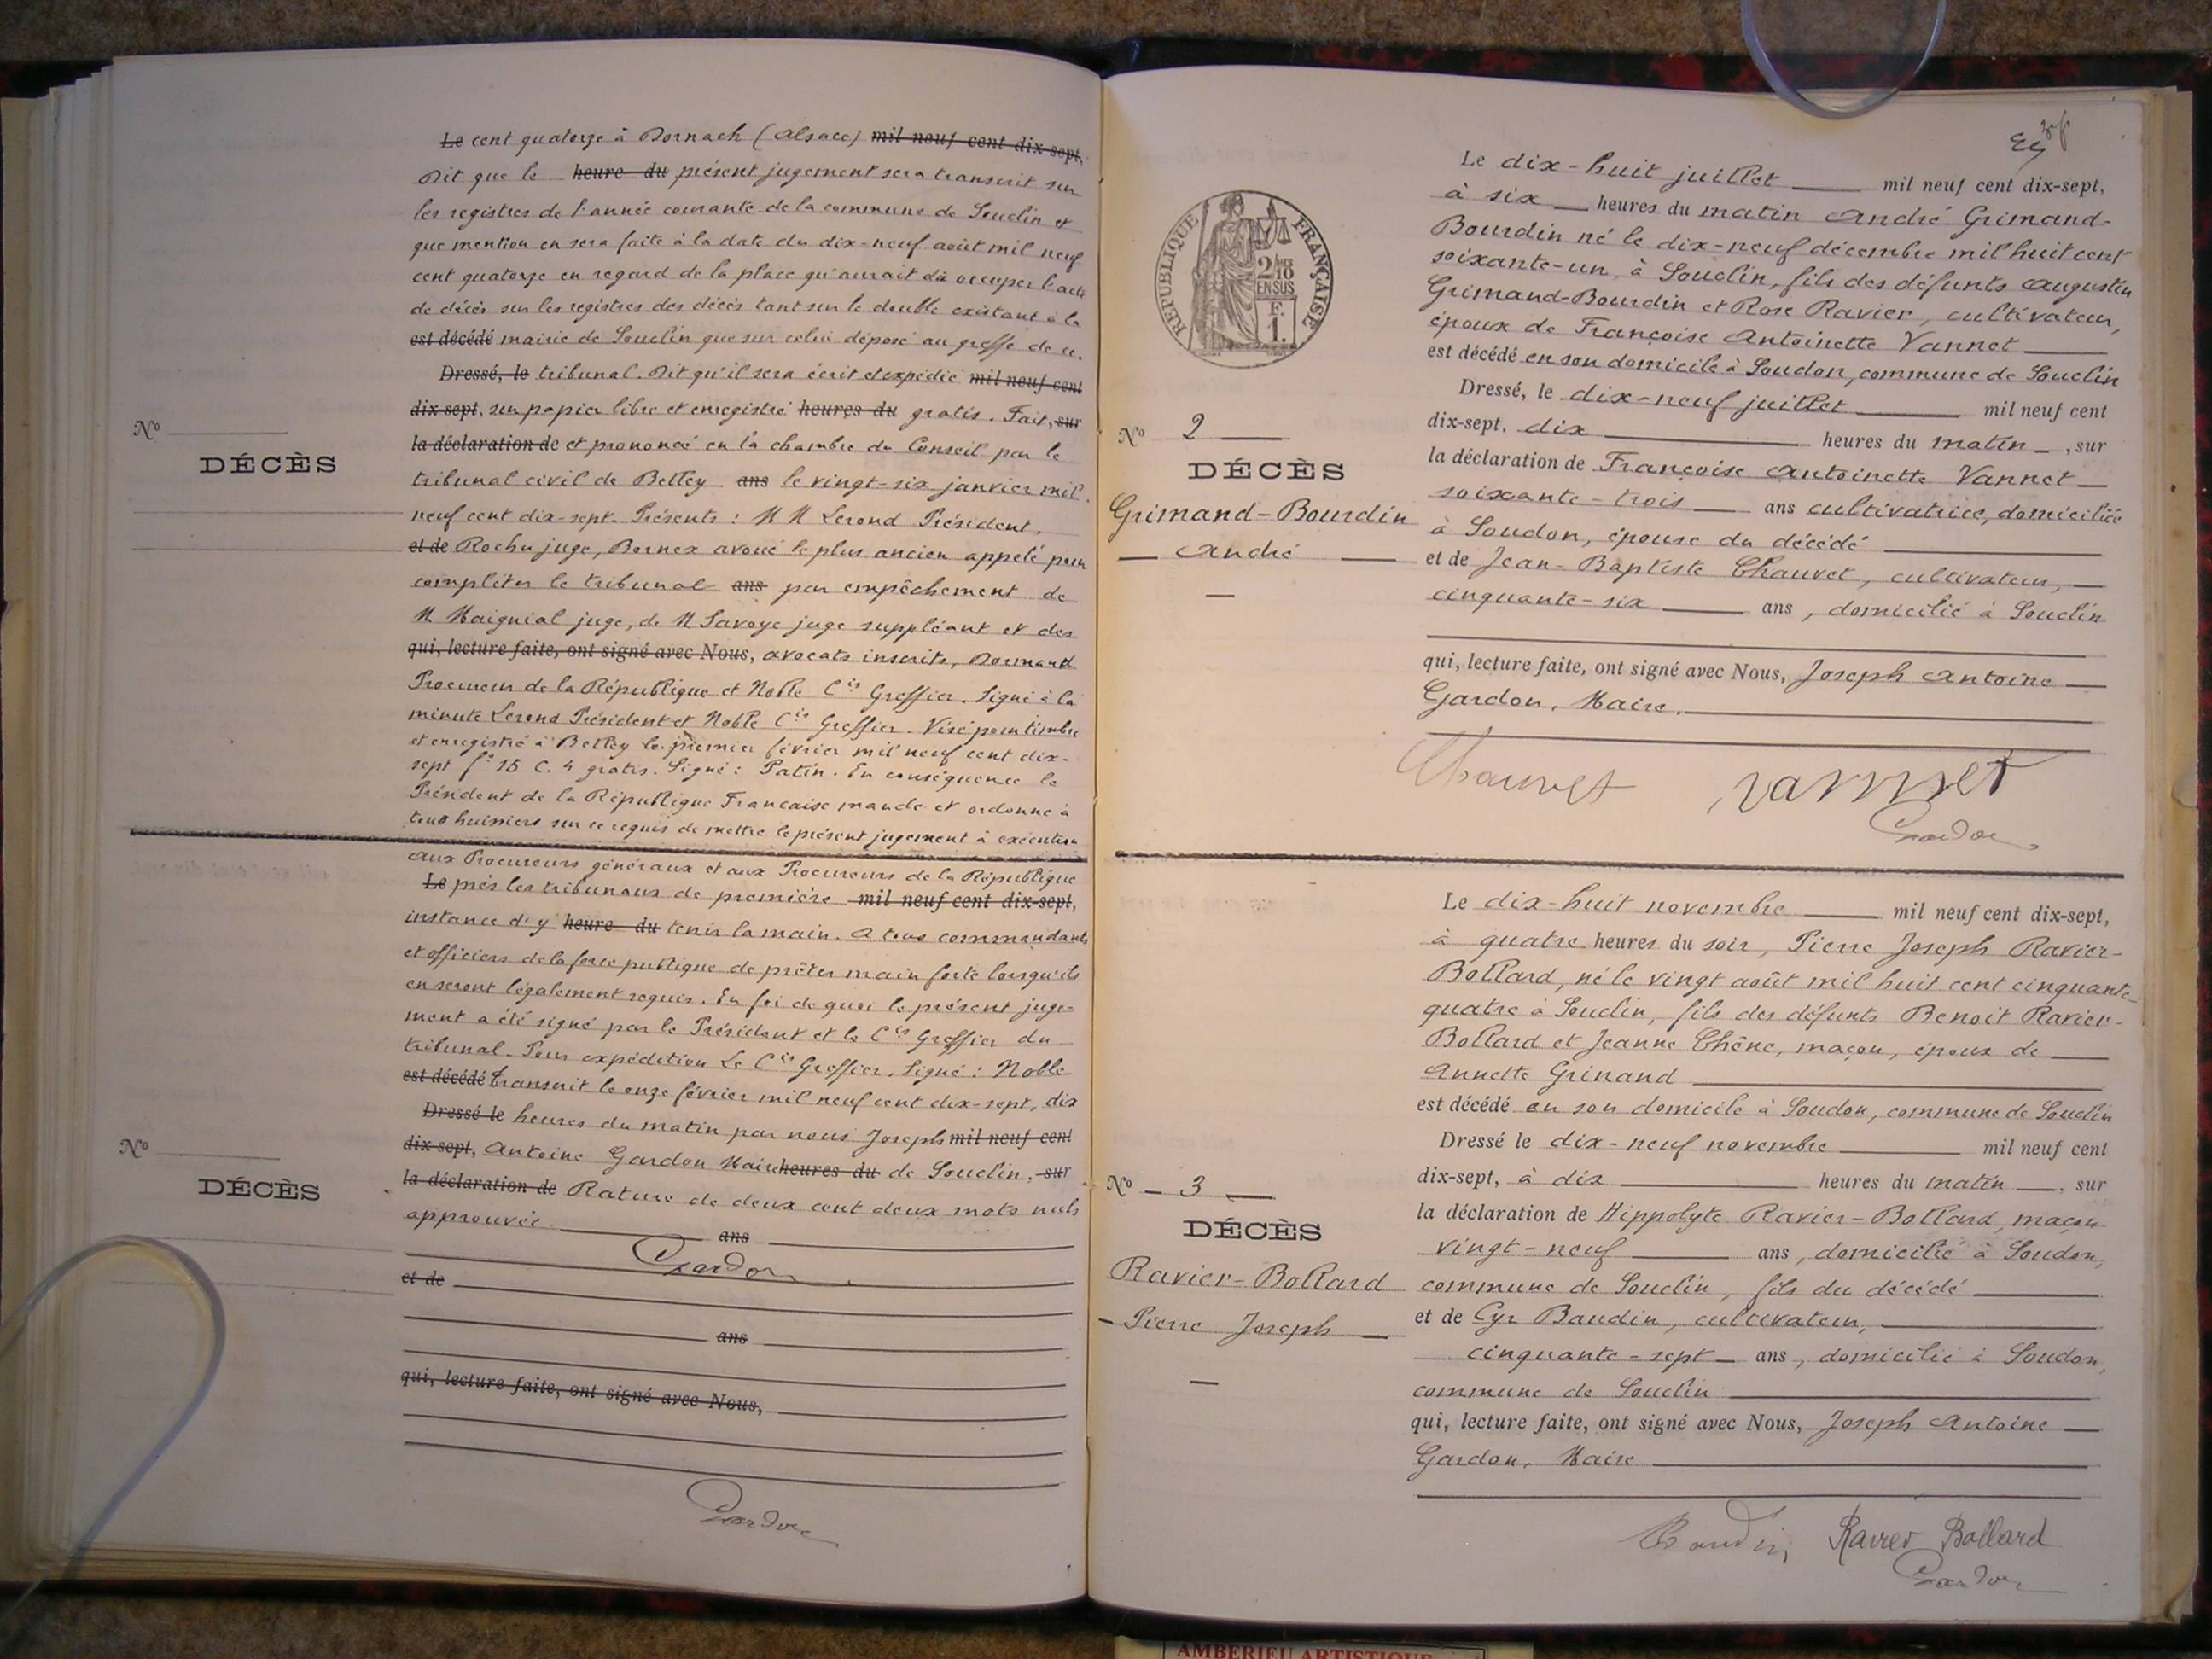 Le cent quatorze à Dornach (Alsace) mil neuf cent dix-sept,
Dit que le heure du présent jugement sera transcrit sur
les registres de l'année courante de la commune de Souclin et
que mention en sera faite à la date du dix-neuf août mil neuf
cent quatorze en regard de la place qu'aurait dû occuper l'acte
de décès sur les registres des décès tant sur le double existant à la
est décédé mairie de Souclin que sur celui déposé au greffe de ce.
Dressé, le tribunal. Dit qu'il sera écrit et expédié mil neuf cent
dix-sept, sur papier libre et enregistré heures du gratis. Fait, sur
la déclaration de et prononcé en la chambre du Conseil par le
N°
DÉCÈS
tribunal civil de Belley ans le vingt-six janvier mil
neuf cent dix-sept. Présents : MM Lerond Président,
et de Rochu juge, Bornex avoué le plus ancien appelé pour
compléter le tribunal ans par empêchement de
M Maignial juge, de M Savoye juge suppléant et des
qui, lecture faite, ont signé avec Nous, avocats inscrits, Dormand
Procureur de la République et Noble Cis Greffier. Signé à la
minute Lerond Président et Noble Cis Greffier. Visé pour timbre
et enregistré à Belley le premier février mil neuf cent dix-
sept f° 15 C. 4 gratis. Signé : Patin. En conséquence le
Président de la République Française mande et ordonne à
tous huissiers sur ce requis de mettre le présent jugement à exécution
aux Procureurs généraux et aux Procureurs de la République
Le près les tribunaux de première mil neuf cent dix-sept,
instance d'y heure du tenir la main. A tous commandants
et officiers de la force publique de prêter main forte lorsqu'ils
en seront légalement requis. En foi de quoi le présent juge-
ment a été signé par le Président et le Cis Greffier du
tribunal. Pour expédition Le Cis Greffier. Signé : Noble
est décédé Transcrit le onze février mil neuf cent dix-sept, dix
Dressé le heures du matin par nous Joseph mil neuf cent
dix-sept, Antoine Gardon Maire heures du de Souclin, sur
la déclaration de Rature de deux cent deux mots nuls
approuvée ans
N°
DÉCÈS
Gardon
et de
ans
qui, lecture faite, ont signé avec Nous,
Gardon
REPUBLIQUE FRANÇAISE
2/10
EN SUS
F.
1.
Le dix-huit juillet mil neuf cent dix-sept,
à six heures du matin André Grimand-
Bourdin né le dix-neuf décembre mil huit cent
soixante-un, à Souclin, fils des défunts Augustin
Grimand-Bourdin et Rose Ravier, cultivateur,
époux de Françoise Antoinette Vannet
est décédé en son domicile à Soudon, commune de Souclin
Dressé, le dix-neuf juillet mil neuf cent
dix-sept, dix heures du matin, sur
la déclaration de Françoise Antoinette Vannet
soixante-trois ans cultivatrice, domiciliée
à Soudon, épouse du décédé
et de Jean-Baptiste Chauvet, cultivateur,
cinquante-six ans, domicilié à Souclin
qui, lecture faite, ont signé avec Nous, Joseph Antoine
Gardon, Maire.
N° 2
DÉCÈS
Grimand-Bourdin
André
Chauvet Vannet
Gardon
Le dix-huit novembre mil neuf cent dix-sept,
à quatre heures du soir, Pierre Joseph Ravier-
Bollard, né le vingt août mil huit cent cinquante-
quatre à Souclin, fils des défunts Benoit Ravier-
Bollard et Jeanne Chêne, maçon, époux de
Annette Grinand
est décédé en son domicile à Soudon, commune de Souclin
Dressé le dix-neuf novembre mil neuf cent
dix-sept, à dix heures du matin, sur
la déclaration de Hippolyte Ravier-Bollard, maçon
vingt-neuf ans, domicilié à Soudon,
commune de Souclin, fils du décédé
et de Cyr Baudin, cultivateur,
cinquante-sept ans, domicilié à Soudon,
commune de Souclin
qui, lecture faite, ont signé avec Nous, Joseph Antoine
Gardon, Maire
N° 3
DÉCÈS
Ravier-Bollard
Pierre Joseph
Baudin Ravier Bollard
Gardon
AMBERIEU ARTISTIQUE